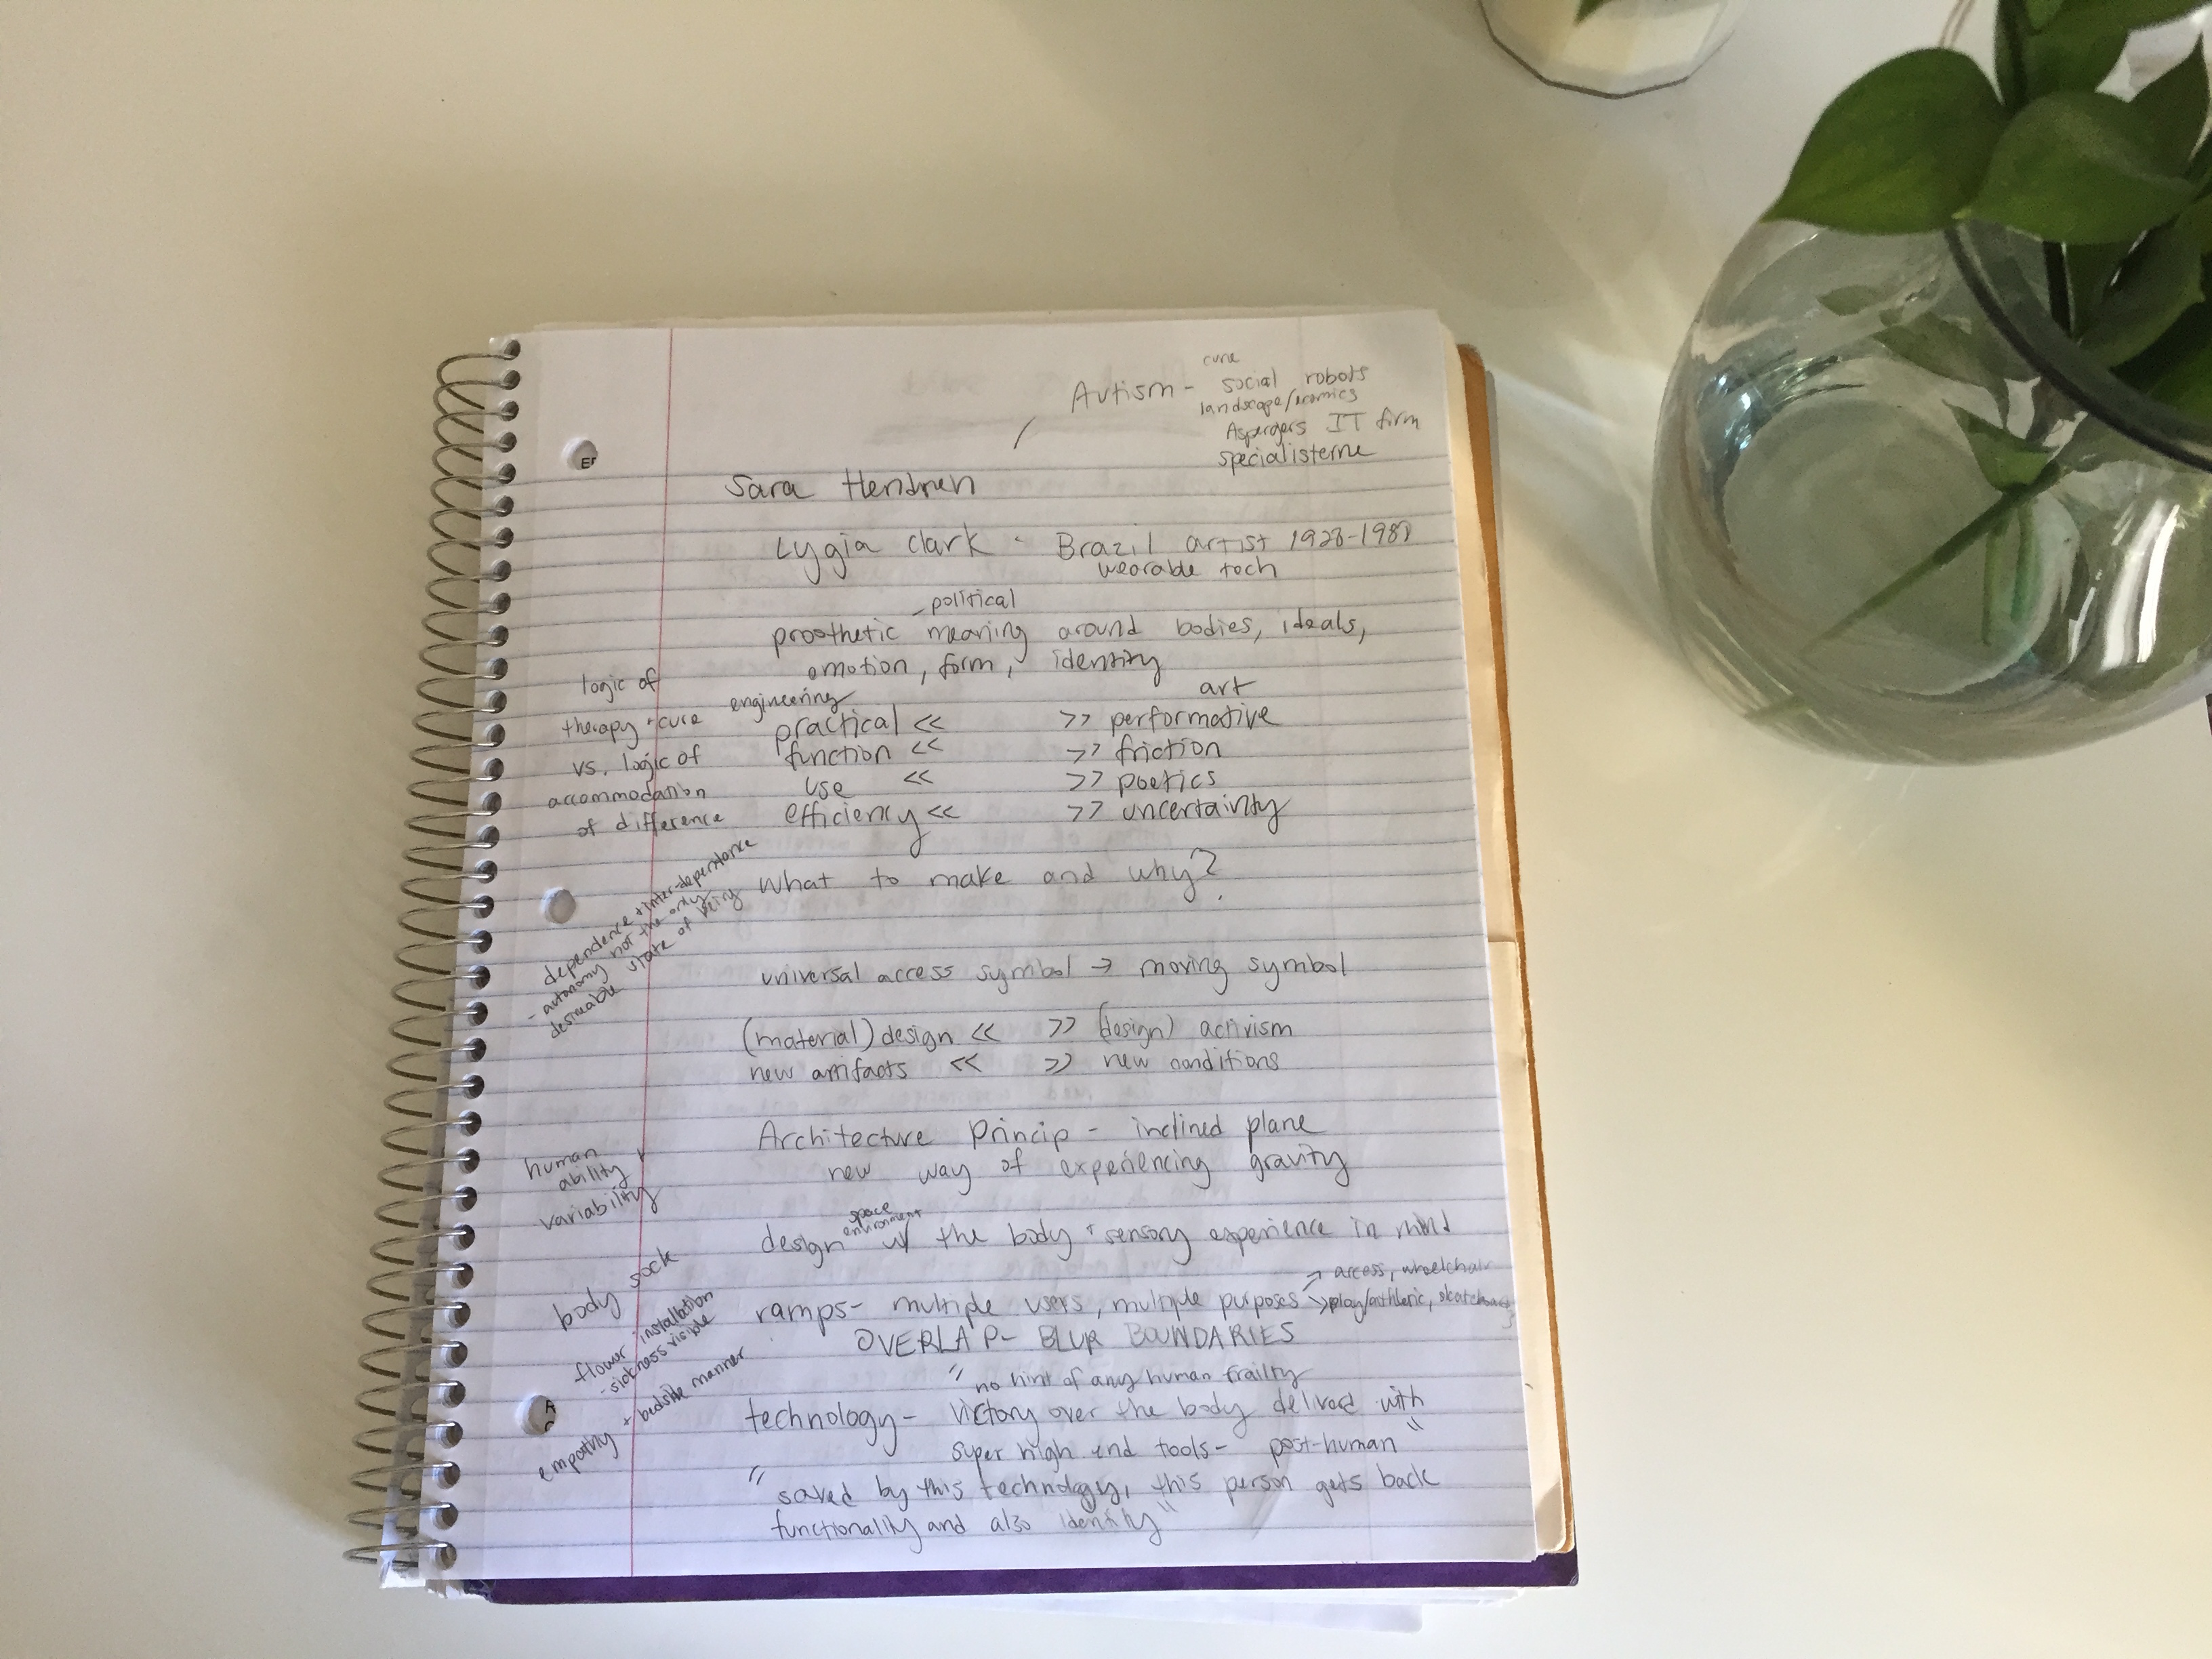 cure
Autism - social robots
landscape/
Aspergers IT firm
specialisterne
Sara Hendren
Lygia Clark - Brazil artist
wearable tech
political
prosthetic meaning around bodies, ideals,
emotion, form, identity
logic of
therapy + cure
vs. logic of
accommodation
of difference
engineering art
practical << >> performative
function << >> friction
use << >> poetics
efficiency << >> uncertainty
What to make and why?
dependence + inter-dependence
- autonomy not the only
desireable state of being
universal access symbol → moving symbol
(material) design << >> (design) activism
new artifacts << >> new conditions
Architecture Princip - inclined plane
new way of experiencing gravity
human
ability
variability
space
environment
design w/ the body + sensory experience in mind
body sock
→ access, wheelchair
ramps - multiple users, multiple purposes → play/athletic,
OVERLAP - BLUR BOUNDARIES
flower installation
- sickness visible
empathy + bedside manner
"no hint of any human frailty
technology - victory over the body with
super high end tools - post-human"
"saved by this technology, this person gets back
functionality and also identity"